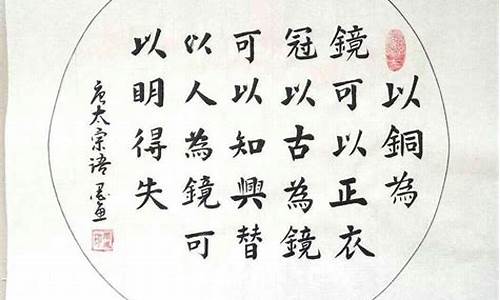 以銅為
鏡可以正衣
冠以古為鏡
可以知興替
以人為鏡可
以明得失
唐太宗語